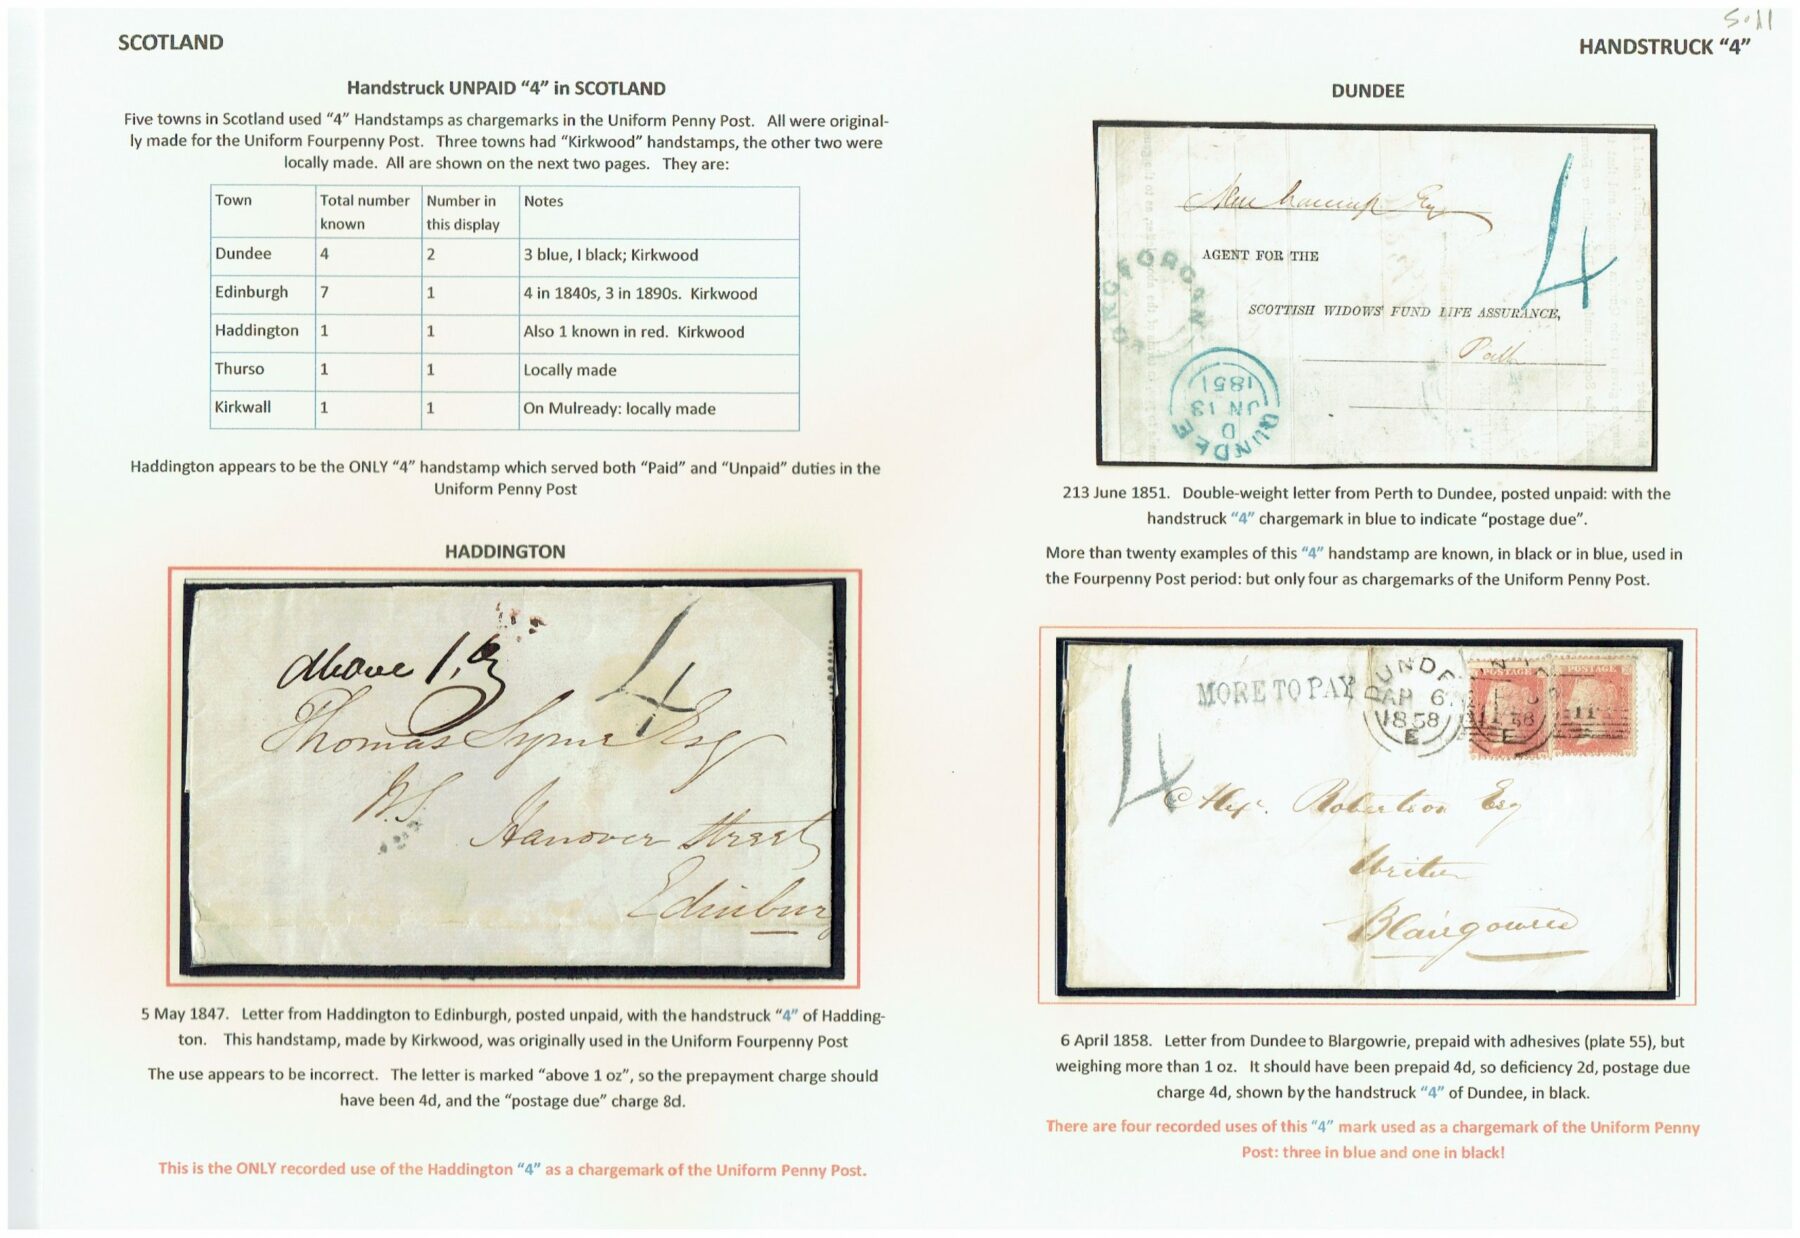 5.11
SCOTLAND
HANDSTRUCK “4”
Handstruck UNPAID “4” in SCOTLAND
Five towns in Scotland used “4” Handstamps as chargemarks in the Uniform Penny Post. All were original-
ly made for the Uniform Fourpenny Post. Three towns had “Kirkwood” handstamps, the other two were
locally made. All are shown on the next two pages. They are:
Town Total number known Number in this display Notes
Dundee 4 2 3 blue, I black; Kirkwood
Edinburgh 7 1 4 in 1840s, 3 in 1890s. Kirkwood
Haddington 1 1 Also 1 known in red. Kirkwood
Thurso 1 1 Locally made
Kirkwall 1 1 On Mulready: locally made
Haddington appears to be the ONLY “4” handstamp which served both “Paid” and “Unpaid” duties in the
Uniform Penny Post
HADDINGTON
above 1 oz
4
Thomas Syme Esq
W.S.
Hanover Street
Edinburg
5 May 1847. Letter from Haddington to Edinburgh, posted unpaid, with the handstruck “4” of Hadding-
ton. This handstamp, made by Kirkwood, was originally used in the Uniform Fourpenny Post
The use appears to be incorrect. The letter is marked “above 1 oz”, so the prepayment charge should
have been 4d, and the “postage due” charge 8d.
This is the ONLY recorded use of the Haddington “4” as a chargemark of the Uniform Penny Post.
DUNDEE
4
Esq
AGENT FOR THE
SCOTTISH WIDOWS' FUND LIFE ASSURANCE,
DUNDEE
D
JN 13
1851
213 June 1851. Double-weight letter from Perth to Dundee, posted unpaid: with the
handstruck “4” chargemark in blue to indicate “postage due”.
More than twenty examples of this “4” handstamp are known, in black or in blue, used in
the Fourpenny Post period: but only four as chargemarks of the Uniform Penny Post.
MORE TO PAY
DUNDEE
AP 6
1858
E
POSTAGE
POSTAGE
11
4
Alexr. Robertson Esq
Writer
Blairgowrie
6 April 1858. Letter from Dundee to Blargowrie, prepaid with adhesives (plate 55), but
weighing more than 1 oz. It should have been prepaid 4d, so deficiency 2d, postage due
charge 4d, shown by the handstruck “4” of Dundee, in black.
There are four recorded uses of this “4” mark used as a chargemark of the Uniform Penny
Post: three in blue and one in black!